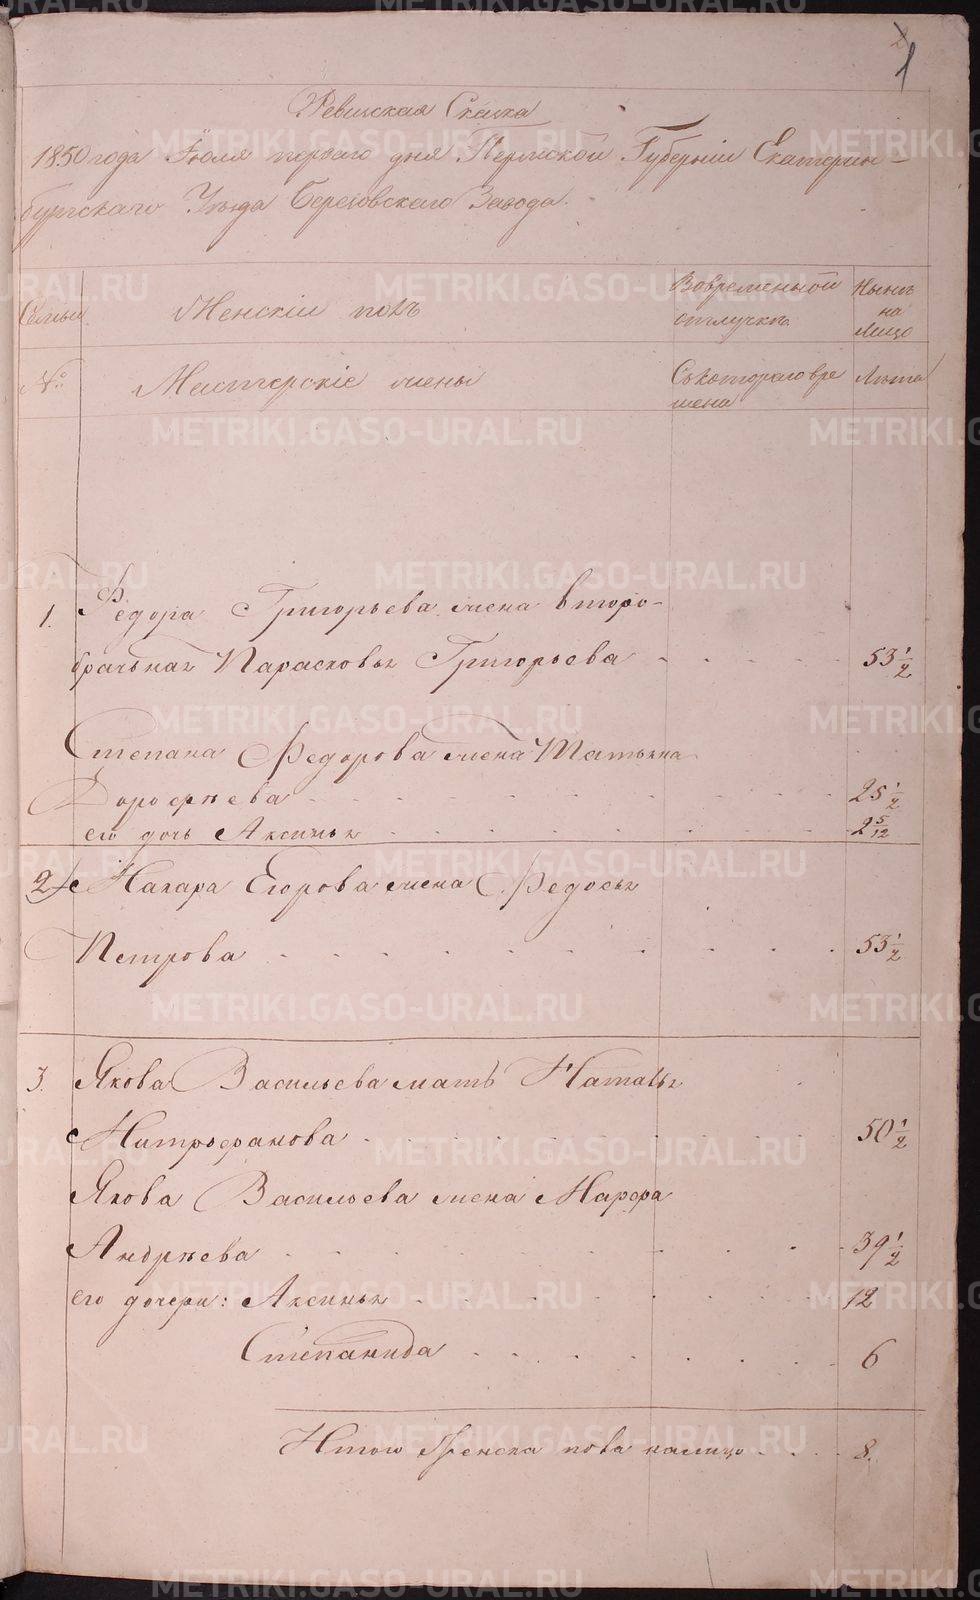 1
Ревизская Сказка
1850 года Июля перваго дня Пермской Губерніи Екатерин-
бургскаго Уѣзда Березовскаго Завода.
Семьи Женскій полъ Вовременной Нынѣ
отлучкѣ на
Лицо
№ Мастерскіе жены Съкотораго вре Лѣта
мени
1. Федора Григорьева жена второ-
брачьная Парасковья Григорьева 53 1/2
Степана Федорова жена Татьяна
Дорофѣева 25 1/2
его дочь Аксинья 2 5/12
2 Макара Егорова жена Федосья
Петрова 53 1/2
3. Якова Васильева мать Наталья
Митрофанова 50 1/2
Якова Васильева жена Марфа
Андрѣева 39 1/2
его дочери: Аксинья 12
Степанида 6
Итого Женска пола налицо 8.
METRIKI.GASO-URAL.RU